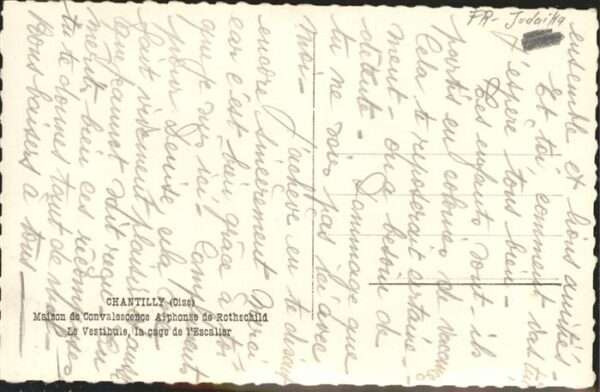 ensemble et bons amitiés -
Et toi comment vas-tu
j'espère tous bien -
Les enfants vont-ils
partis en colonies de vacances
Cela te reposerait certaine-
ment - on a besoin de
détente - Dommage que
tu ne sois pas ici avec
moi -
J'achève en te disant
encore sincèrement Merci
car c'est bien grâce à toi
que je suis ici -
pour Denise cela
fait vraiment plaisir
mérite bien ces récompenses
tu te donnes tant de mal
Bons baisers à tous
FR - Judaika
CHANTILLY (Oise)
Maison de Convalescence Alphonse de Rothschild
Le Vestibule, la cage de l'Escalier